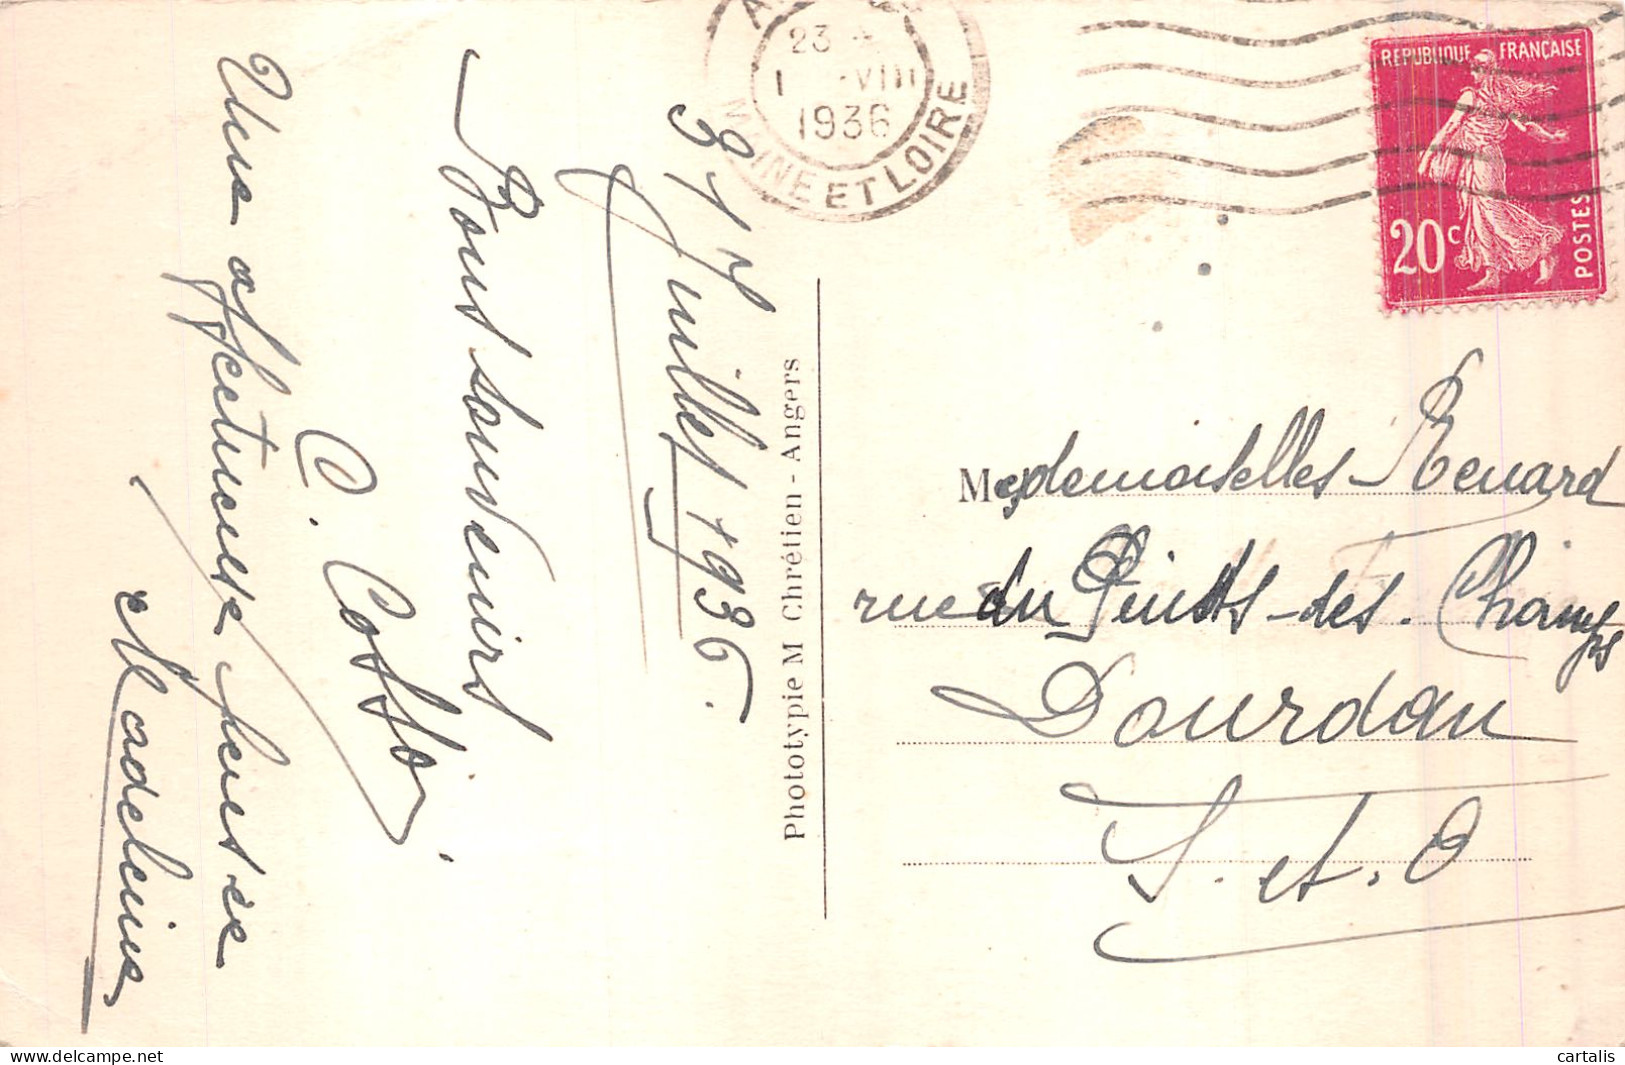 31 Juillet 1936.
Bons souvenirs
C. Cossé
Une affectueuse pensée
Madeleine
Phototypie M Chrétien - Angers
23
1 -VIII
1936
MAINE ET LOIRE
REPUBLIQUE FRANÇAISE
20c
POSTES
Mesdemoiselles Renard
rue du Puits-des-Champs
Dourdan
S.et.O
www.delcampe.net
cartalis